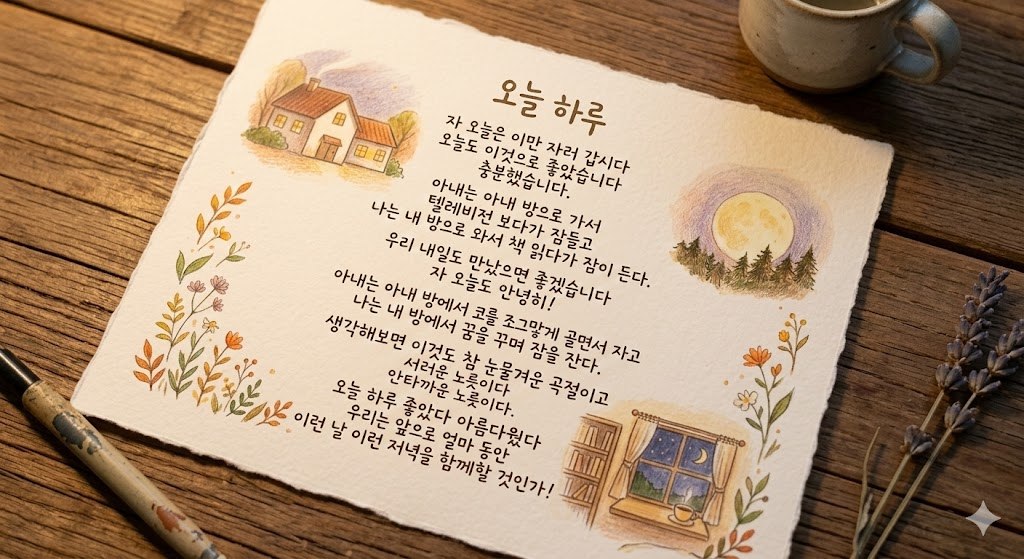 오늘 하루
자 오늘은 이만 자러 갑시다
오늘도 이것으로 좋았습니다
충분했습니다.
아내는 아내 방으로 가서
텔레비전 보다가 잠들고
나는 내 방으로 와서 책 읽다가 잠이 든다.
우리 내일도 만났으면 좋겠습니다
자 오늘도 안녕히!
아내는 아내 방에서 코를 조그맣게 골면서 자고
나는 내 방에서 꿈을 꾸며 잠을 잔다.
생각해보면 이것도 참 눈물겨운 곡절이고
서러운 노릇이다
안타까운 노릇이다.
오늘 하루 좋았다 아름다웠다
우리는 앞으로 얼마 동안
이런 날 이런 저녁을 함께할 것인가!